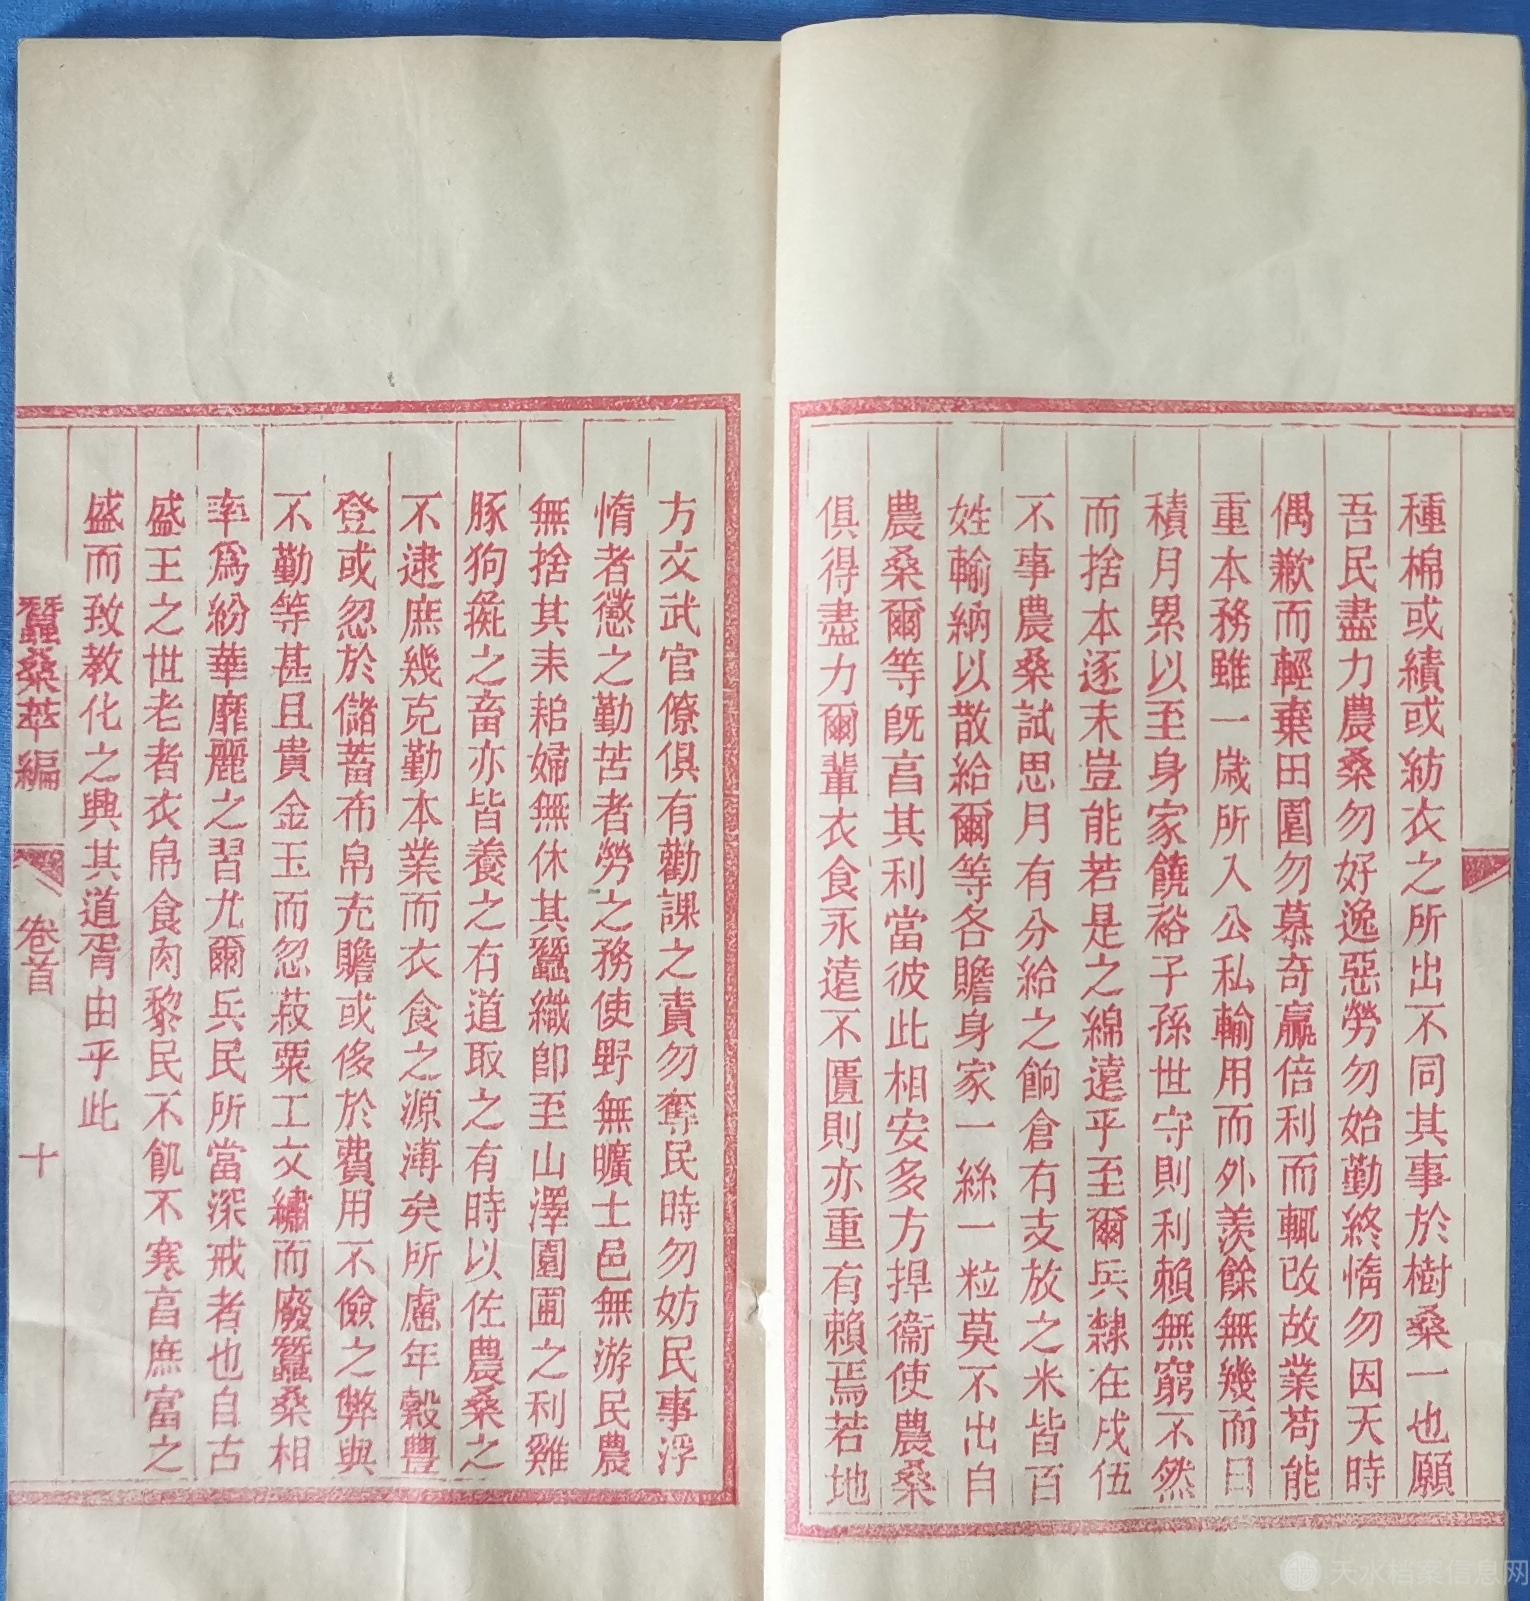 種棉或績或紡衣之所出不同其事於樹桑一也願
吾民盡力農桑勿好逸惡勞勿始勤終惰勿因天時
偶歉而輕棄田園勿慕奇贏倍利而輒改故業苟能
重本務雖一歲所入公私輸用而外羨餘無幾而日
積月累以至身家饒裕子孫世守則利賴無窮不然
而捨本逐末豈能若是之綿遠乎至爾兵隸在戎伍
不事農桑試思月有分給之餉倉有支放之米皆百
姓輸納以散給爾等各贍身家一絲一粒莫不出自
農桑爾等旣亯其利當彼此相安多方捍衞使農桑
俱得盡力爾輩衣食永遠不匱則亦重有賴焉若地
方文武官僚俱有勸課之責勿奪民時勿妨民事浮
惰者懲之勤苦者勞之務使野無曠土邑無游民農
無捨其耒耜婦無休其蠶織卽至山澤園圃之利雞
豚狗彘之畜亦皆養之有道取之有時以佐農桑之
不逮庶幾克勤本業而衣食之源溥矣所慮年穀豐
登或忽於儲蓄布帛充贍或侈於費用不儉之弊與
不勤等甚且貴金玉而忽菽粟工文繡而廢蠶桑相
率爲紛華靡麗之習尤爾兵民所當深戒者也自古
盛王之世老者衣帛食肉黎民不飢不寒亯庶富之
盛而致教化之興其道胥由乎此
蠶桑萃編 卷首 十
天水档案信息网